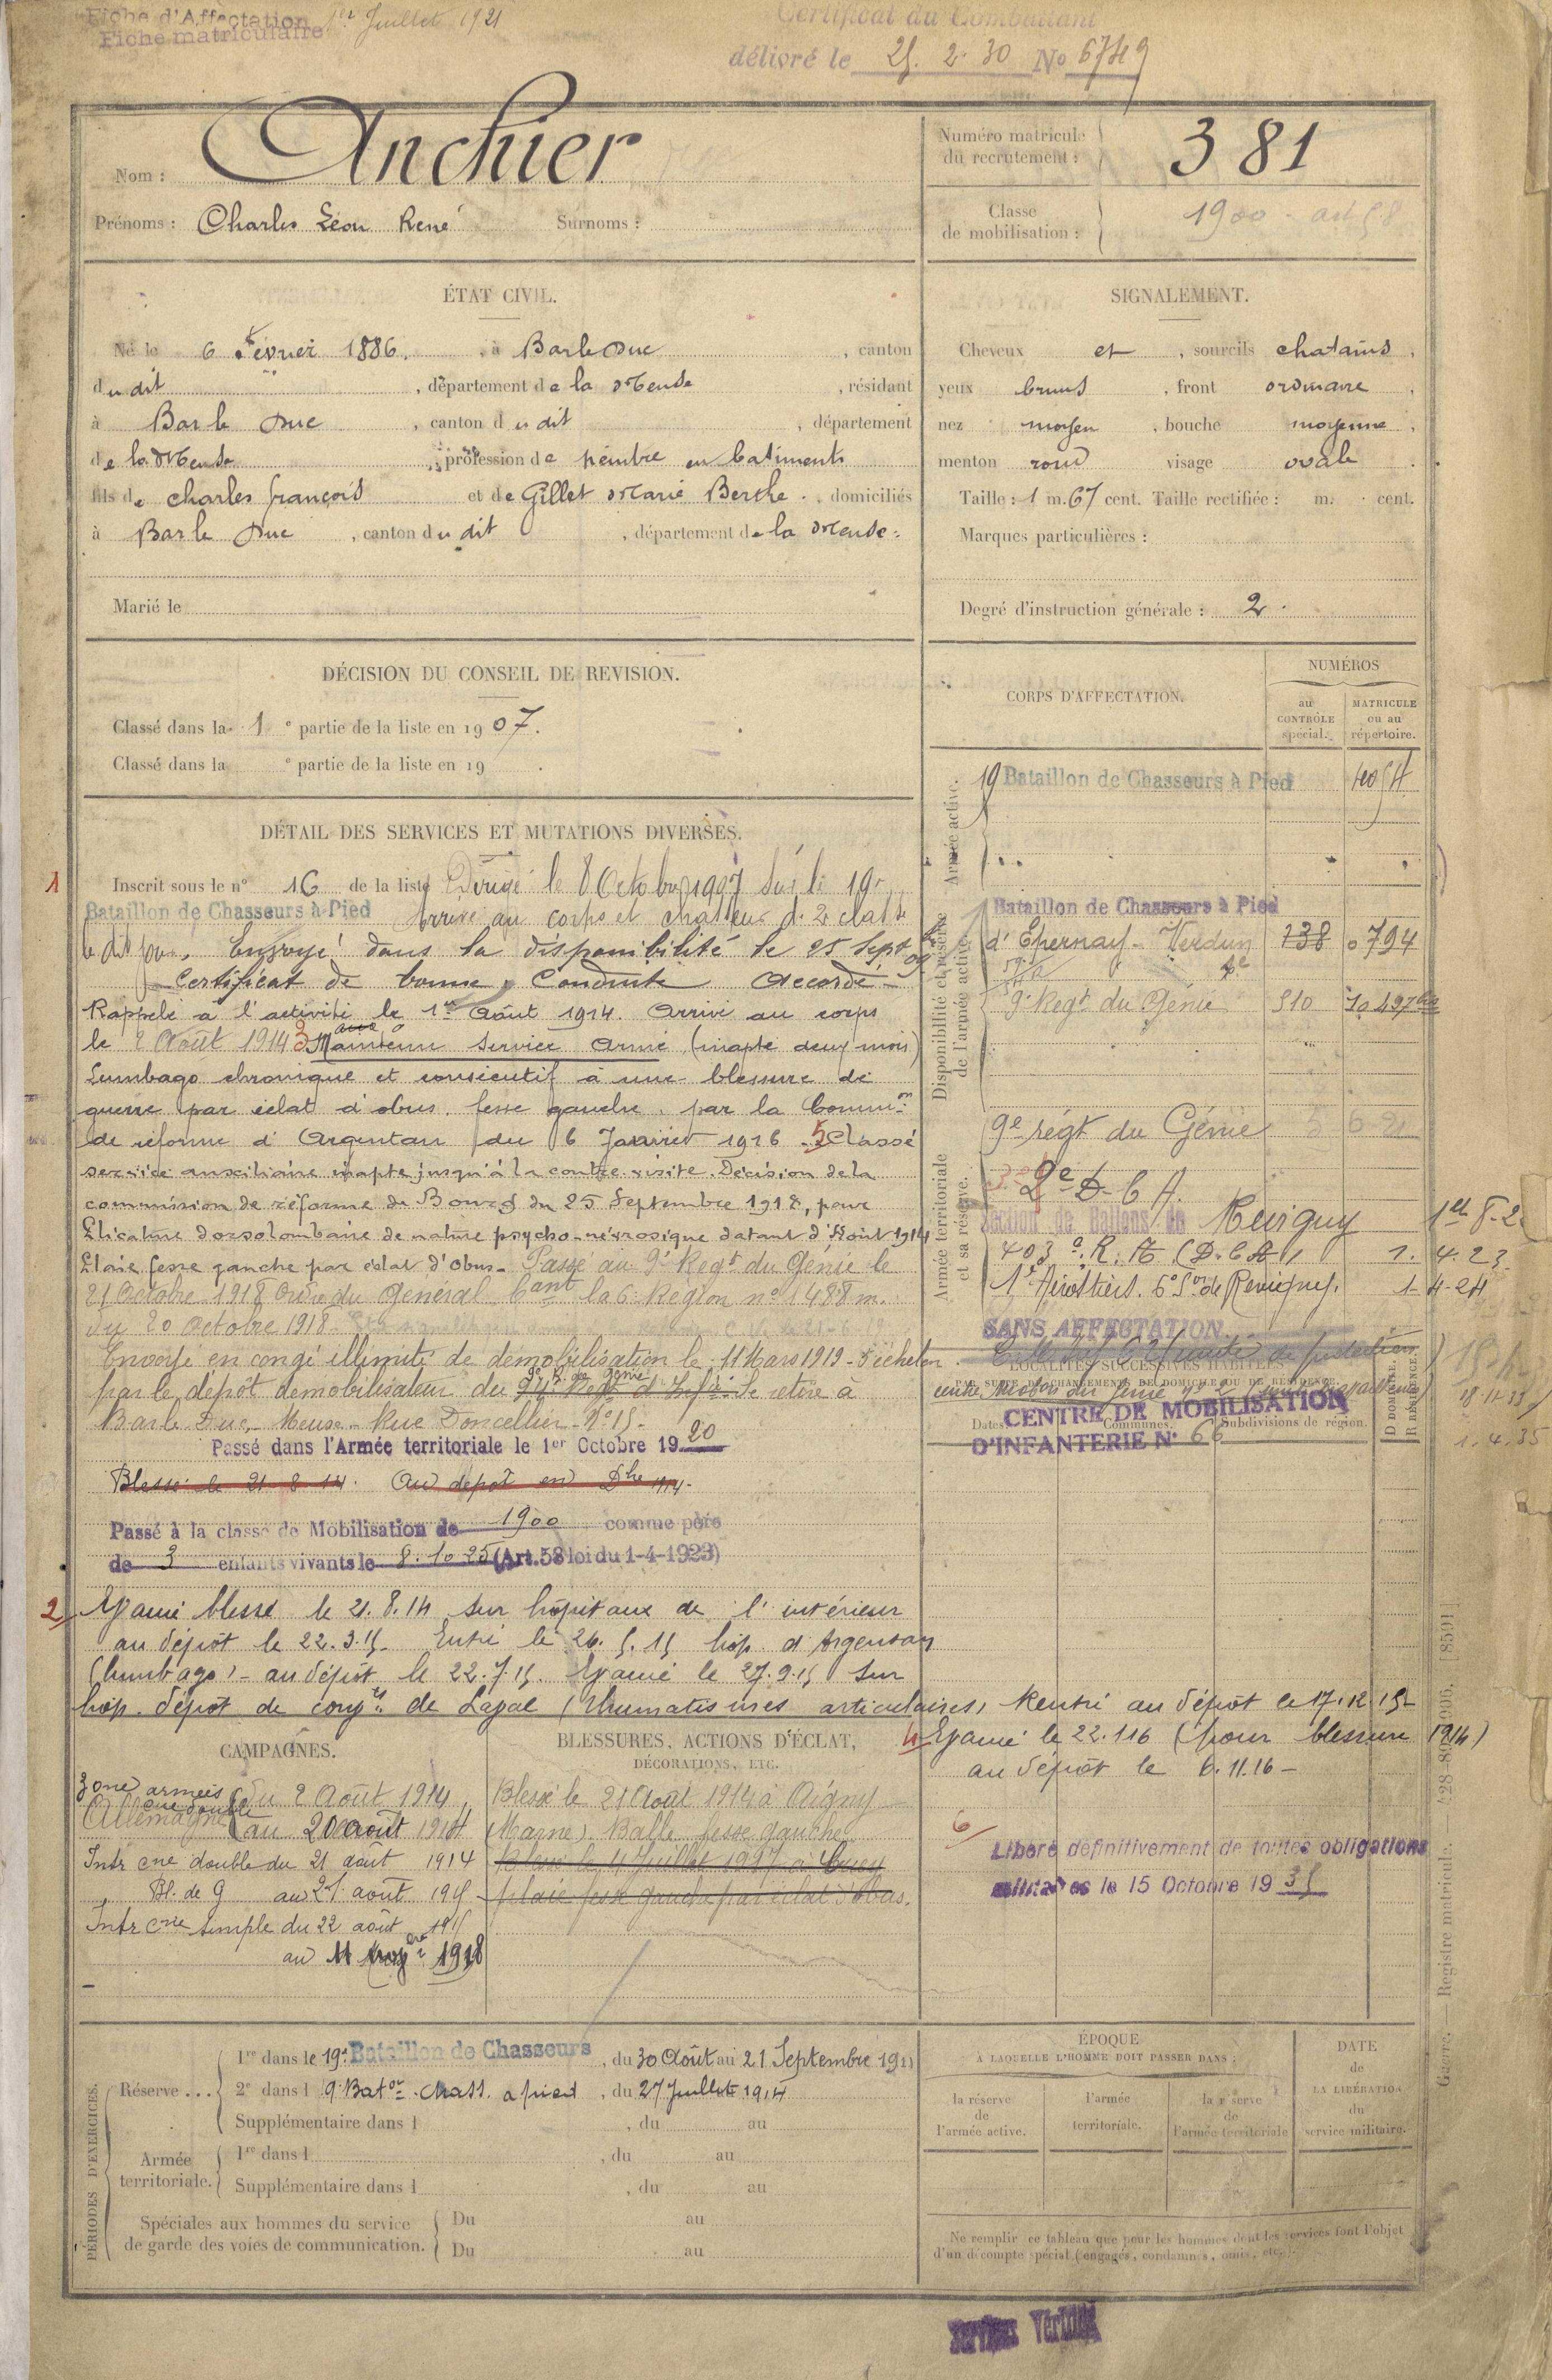 Fiche d'Affectation 1er Juillet 1921
Fiche matriculaire
Certificat du Combattant
délivré le 25. 2. 30 No 6749
Nom : Anchier
Prénoms : Charles Léon René Surnoms :
Numéro matricule du recrutement : 381
Classe de mobilisation : 1900 - art 58
ÉTAT CIVIL.
Né le 6 Février 1886, à Bar le Duc, canton
du dit, département de la Meuse, résidant
à Bar le Duc, canton du dit, département
de la Meuse, profession de peintre en batiments
fils de Charles françois et de Gillet Marie Berthe, domiciliés
à Bar le Duc, canton du dit, département de la Meuse.
Marié le
SIGNALEMENT.
Cheveux et, sourcils chatains,
yeux bruns, front ordinaire,
nez moyen, bouche moyenne,
menton rond visage ovale.
Taille : 1 m. 67 cent. Taille rectifiée : m. cent.
Marques particulières :
Degré d'instruction générale : 2.
DÉCISION DU CONSEIL DE REVISION.
Classé dans la 1e partie de la liste en 1907.
Classé dans la e partie de la liste en 19 .
DÉTAIL DES SERVICES ET MUTATIONS DIVERSES.
1 Inscrit sous le n° 16 de la liste Dirigé le 8 Octobre 1907 sur le 19e
Bataillon de Chasseurs à Pied Arrivé au corps et chasseur de 2e classe
le dit jour. Envoyé dans la disponibilité le 25 Septbre 09
Certificat de bonne Conduite Accordé -
Rappelé à l'activité le 1er Août 1914. Arrivé au corps
le 2 Août 1914 3 Maintenu service armé (inapte deux mois)
Lumbago chronique et consécutif à une blessure de
guerre par éclat d'obus fesse gauche, par la Common
de réforme d'Argentan du 6 Janvier 1916 - 5 Classé
service auxiliaire inapte jusqu'à la contre visite. Décision de la
commission de réforme de Bourg du 25 Septembre 1918, pour
Plicature dorsolombaire de nature psycho-névrosique datant d'Août 1914
Plaie fesse gauche par éclat d'obus - Passé au 9e Regt du Génie le
21 Octobre 1918 Ordre du Général Cant la 6e Région no 1488 m.
du 20 octobre 1918.
Envoyé en congé illimité de démobilisation le 11 Mars 1919 - 5e échelon
par le dépôt démobilisateur du Se retire à
Bar le Duc, Meuse - Rue Doncellier - No 15 -
Passé dans l'Armée territoriale le 1er Octobre 1920
Blessé le 21-8-14. Au dépôt en Dbre 1914.
Passé à la classe de Mobilisation de 1900 comme père
de 3 enfants vivants le 8.10.25 (Art. 58 loi du 1-4-1923)
2 Evacué blessé le 21.8.14 sur hôpitaux de l'intérieur
au dépôt le 22.3.15. Entré le 26.5.15 hôp. d'Argentan
(lumbago) - au dépôt le 22.7.15. Evacué le 27.9.15 sur
hôp. dépôt de convts de Laval (rhumatismes articulaires) Rentré au dépôt le 17.12.15
4 Evacué le 22.1.16 (pour blessure 1914)
au dépôt le 6.11.16 -
CORPS D'AFFECTATION.
NUMÉROS
au CONTRÔLE spécial.
MATRICULE ou au répertoire.
Armée active.
19 Bataillon de Chasseurs à Pied
Disponibilité et réserve de l'armée active.
Bataillon de Chasseurs à Pied
d'Epernay - Verdun 238 0794
9e Regt du Génie 510
Armée territoriale et sa réserve.
9e régt du Génie
2e D.C.A.
Section de Ballons de Revigny
403e R.A. (D.C.A.) 1. 4. 23.
1er Aérostiers. 6e Son de Revigny. 1-4-24
SANS AFFECTATION.
LOCALITÉS SUCCESSIVES HABITÉES
PAR SUITE DE CHANGEMENTS DE DOMICILE OU DE RÉSIDENCE.
Dates. Communes. Subdivisions de région.
D DOMICILE. R RÉSIDENCE.
CENTRE DE MOBILISATION
D'INFANTERIE N° 66
18-11-33
1.4.35
CAMPAGNES.
Zone armées
Allemagne cne double du 2 Août 1914
au 20 août 1914
Intr cne double du 21 août 1914
Bl. de G au 21 août 1915
Intr cne simple du 22 août 1915
au 11 1918
BLESSURES, ACTIONS D'ÉCLAT, DÉCORATIONS, ETC.
Blessé le 21 Août 1914 à Aigny
(Marne). Balle fesse gauche
Blessé le 4 Juillet 1917 à
plaie fesse gauche par éclat d'obus.
6 Libéré définitivement de toutes obligations
militaires le 15 Octobre 1935
PÉRIODES D'EXERCICES.
Réserve... 1re dans le 19e Bataillon de Chasseurs, du 30 Août au 21 Septembre 191
2e dans l 9e Baton Chass. à pied, du 27 Juillet 1914
Supplémentaire dans l , du au
Armée territoriale. 1re dans l , du au
Supplémentaire dans l , du au
Spéciales aux hommes du service de garde des voies de communication. Du au
Du au
ÉPOQUE
À LAQUELLE L'HOMME DOIT PASSER DANS :
la réserve de l'armée active.
l'armée territoriale.
la réserve de l'armée territoriale
DATE de LA LIBÉRATION du service militaire.
Ne remplir ce tableau que pour les hommes dont les services font l'objet
d'un décompte spécial (engagés, condamnés, omis, etc.).
Registre matricule.
Services Vérifiés